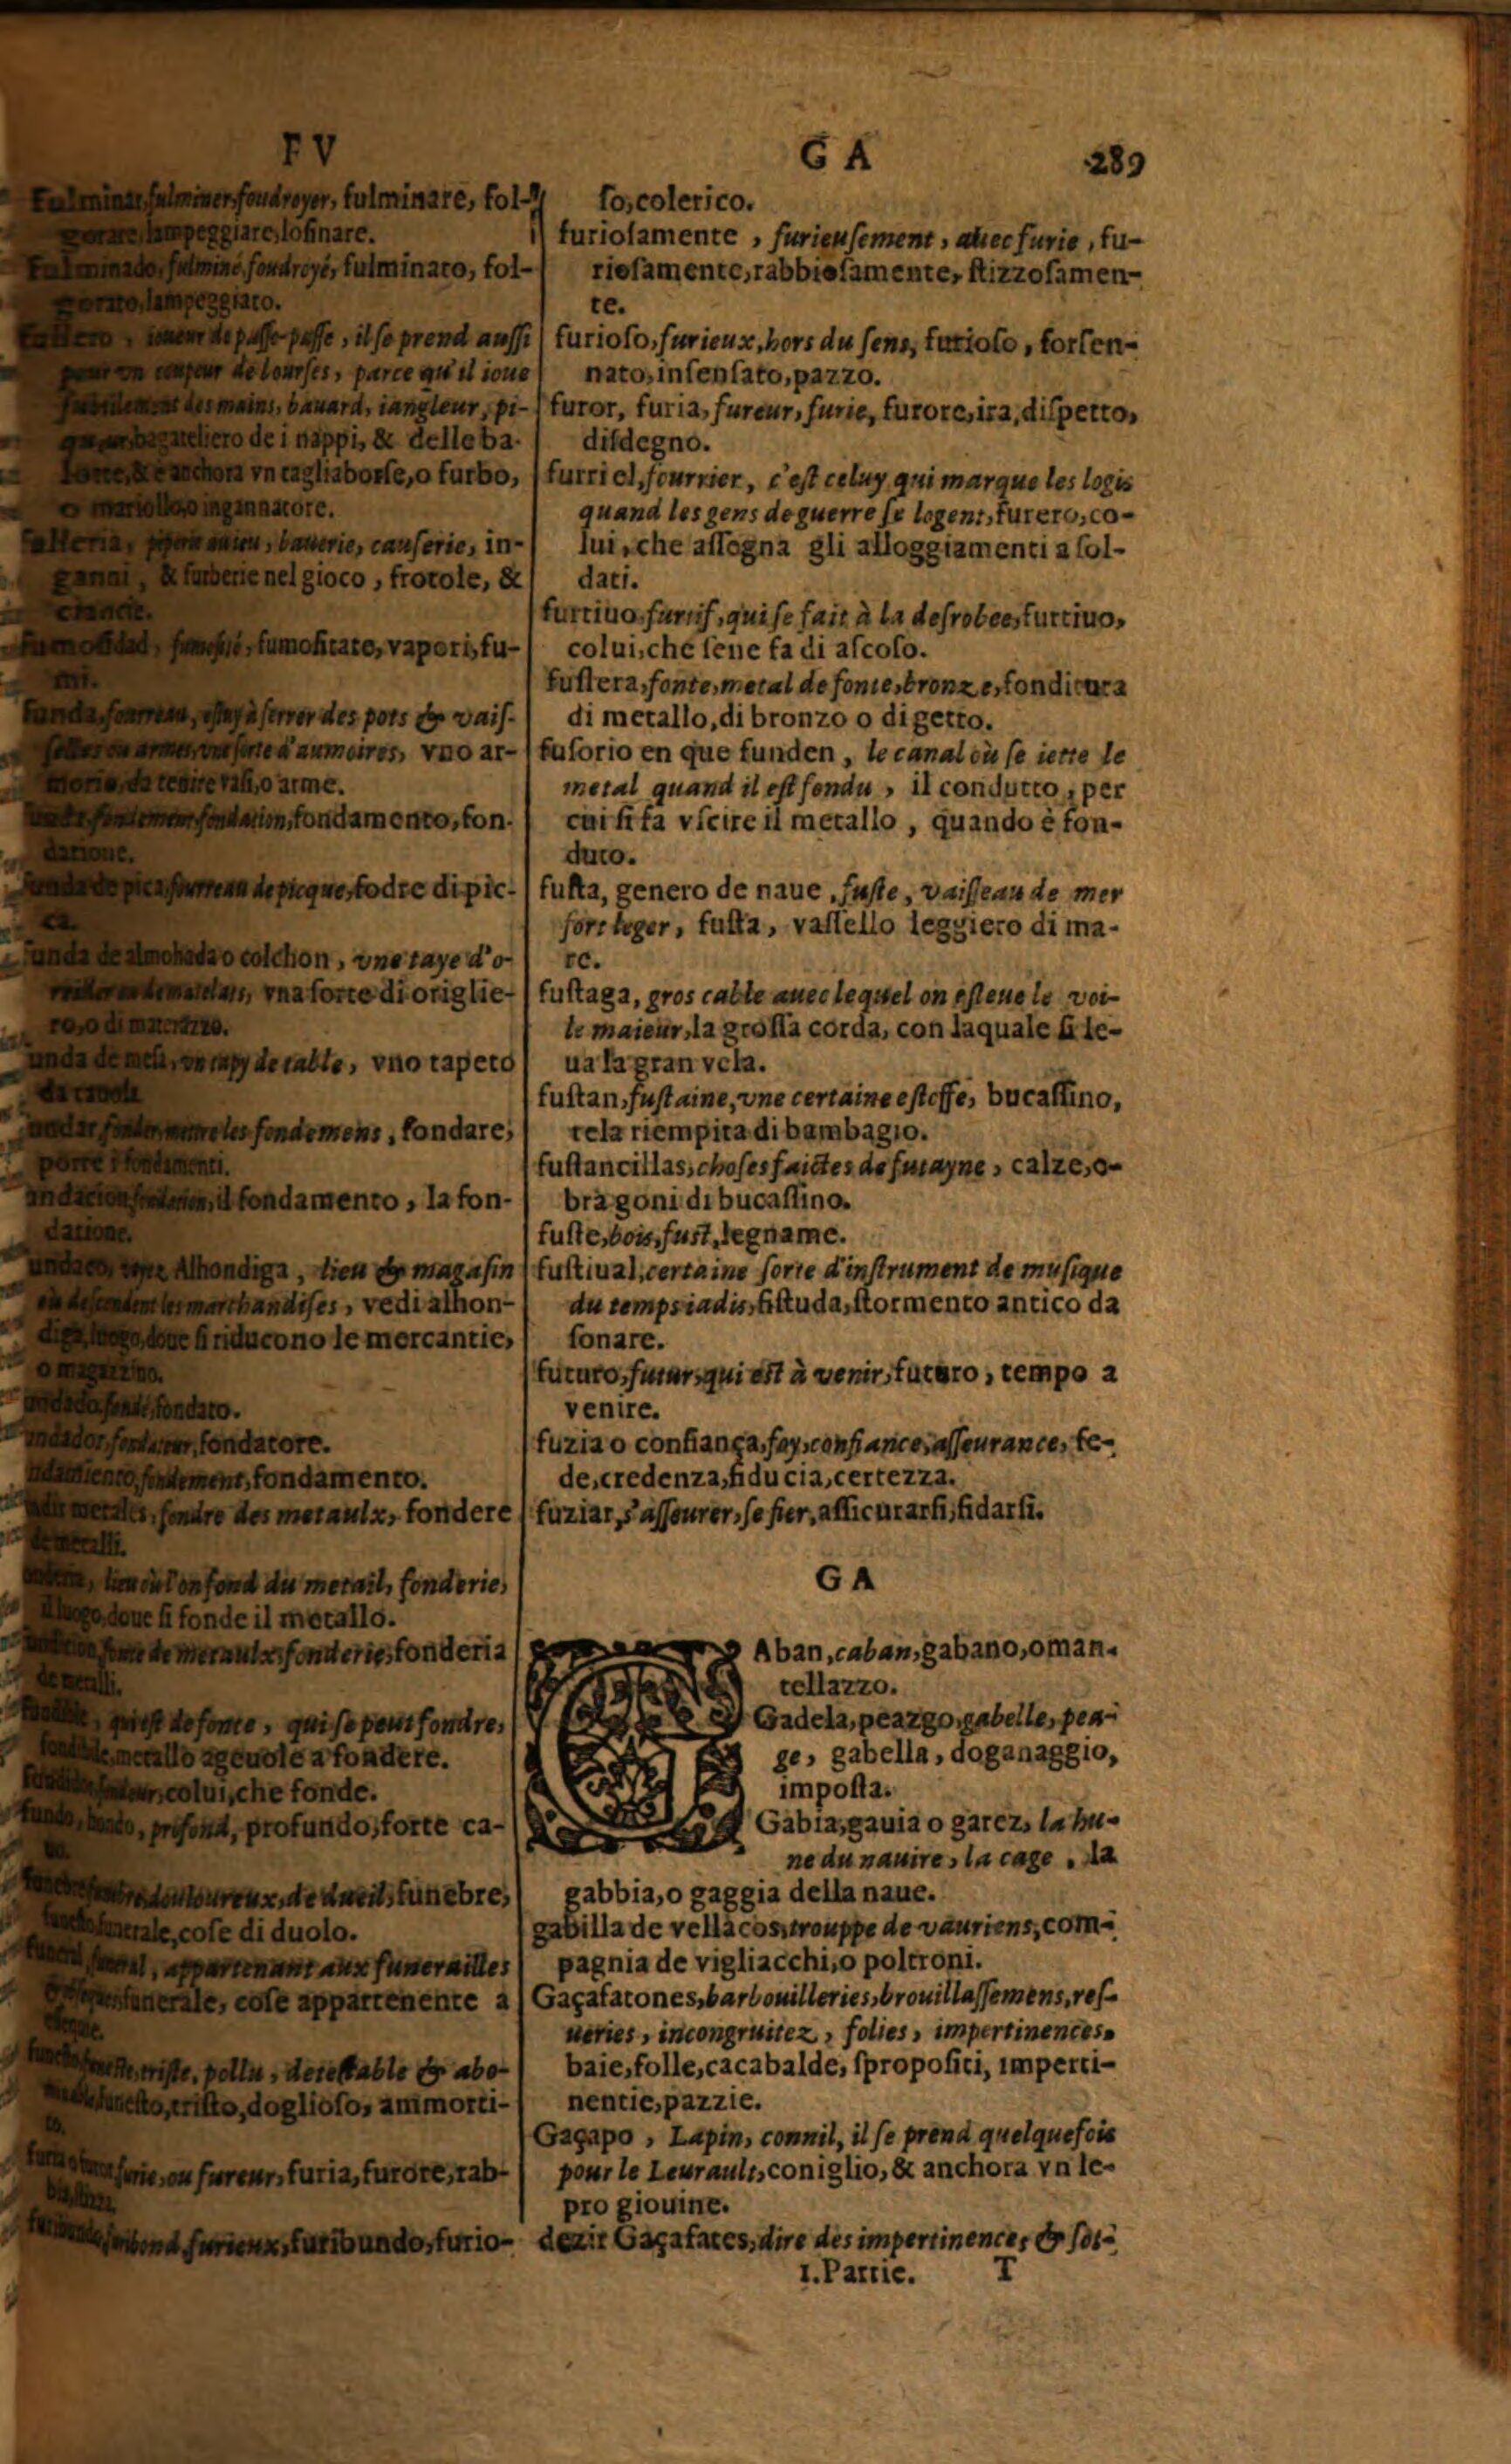 FV
GA 289
Fulminar, fulminer, foudroyer, fulminare, fol-
gorare, lampeggiare, losinare.
Fulminado, fulminé, foudroyé, fulminato, fol-
gorato, lampeggiato.
ioueur de passe-passe, il se prend aussi
pour vn coupeur de bourses, parce qu'il ioue
subtilement des mains, bauard, iangleur, pi-
bagateliero de i nappi, & delle ba-
lotte, & e anchora vn tagliaborse, o furbo,
o mariollo, o ingannatore.
bauerie, causerie, in-
ganni, & furberie nel gioco, frotole, &
ciancie.
fumosidad, fumosité, fumositate, vapori, fu-
mi.
funda, fourreau, estuy à serrer des pots & vais-
selles ou armes, vne sorte d'aumoires, vno ar-
morio, da tenire vasi, o arme.
fondation, fondamento, fon-
datione.
funda de pica, fourreau de picque, fodre di pic-
ca.
funda de almohada o colchon, vne taye d'o-
reiller ou de matelats, vna forte di origlie-
ro, o di materazzo.
funda de mesa, vn tapy de table, vno tapeto
da tauola
fundar, fonder, mettre les fondemens, fondare,
porre i fondamenti.
fundacion, fondation, il fondamento, la fon-
datione.
Alhondiga, lieu & magasin
où descendent les marchandises, vedi alhon-
diga, luogo, doue si riducono le mercantie,
o magazzino.
fundado, fondé, fondato.
fundador, fondateur, fondatore.
fundamiento, fondement, fondamento.
fundir metales, fondre des metaulx, fondere
de metalli.
lieu où l'on fond du metail, fonderie,
il luogo, doue si fonde il metallo.
fonte de metaulx, fonderie, fonderia
de metalli.
qui est de fonte, qui se peut fondre,
fondibile, metallo ageuole a fondere.
fondeur, colui, che fonde.
fundo, hondo, profond, profundo, forte ca-
uo.
douloureux, de dueil, funebre,
funerale, cose di duolo.
funeral, funeral, appartenant aux funerailles
funerale, cose appartenente a
funeste, triste, pollu, detestable & abo-
funesto, tristo, doglioso, ammorti-
to.
furie, ou fureur, furia, furore, rab-
furibond, furieux, furibundo, furio-
so, colerico.
furiosamente, furieusement, auec furie, fu-
riosamente, rabbiosamente, stizzosamen-
te.
furioso, furieux, hors du sens, furioso, forsen-
nato, insensato, pazzo.
furor, furia, fureur, furie, furore, ira, dispetto,
disdegno.
furriel, fourrier, c'est celuy qui marque les logis
quand les gens de guerre se logent, furero, co-
lui, che assegna gli alloggiamenti a sol-
dati.
furtiuo, furtif, qui se fait à la desrobee, furtiuo,
colui, che sene fa di ascoso.
fuslera, fonte, metal de fonte, bronze, fonditura
di metallo, di bronzo o di getto.
fusorio en que funden, le canal où se iette le
metal quand il est fondu, il condutto, per
cui si fa vscire il metallo, quando è fon-
duto.
fusta, genero de naue, fuste, vaisseau de mer
fort leger, fusta, vassello leggiero di ma-
re.
fustaga, gros cable auec lequel on esleue le voi-
le maieur, la grossa corda, con laquale si le-
ua la gran vela.
fustan, fustaine, vne certaine estoffe, bucassino,
tela riempita di bambagio.
fustancillas, choses faictes de futayne, calze, o-
bragoni di bucassino.
fuste, bois, fust, legname.
fustiual, certaine sorte d'instrument de musique
du temps iadis, fistuda, stormento antico da
sonare.
futuro, futur, qui est à venir, futuro, tempo a
venire.
fuzia o confiança, foy, confiance, asseurance, fe-
de, credenza, fiducia, certezza.
fuziar, s'asseurer, se fier, assicurarsi, fidarsi.
GA
GAban, caban, gabano, o man-
tellazzo.
Gadela, peazgo, gabelle, pea-
ge, gabella, doganaggio,
imposta.
Gabia, gauia o garez, la hu-
ne du nauire, la cage, la
gabbia, o gaggia della naue.
gabilla de vellacos, trouppe de vauriens, com-
pagnia de vigliacchi, o poltroni.
Gaçafatones, barbouilleries, brouillassemens, res-
ueries, incongruitez, folies, impertinences,
baie, folle, cacabalde, spropositi, imperti-
nentie, pazzie.
Gaçapo, Lapin, connil, il se prend quelquefois
pour le Leurault, coniglio, & anchora vn le-
pro giouine.
dezir Gaçafates, dire des impertinences & sot-
1. Partie. T